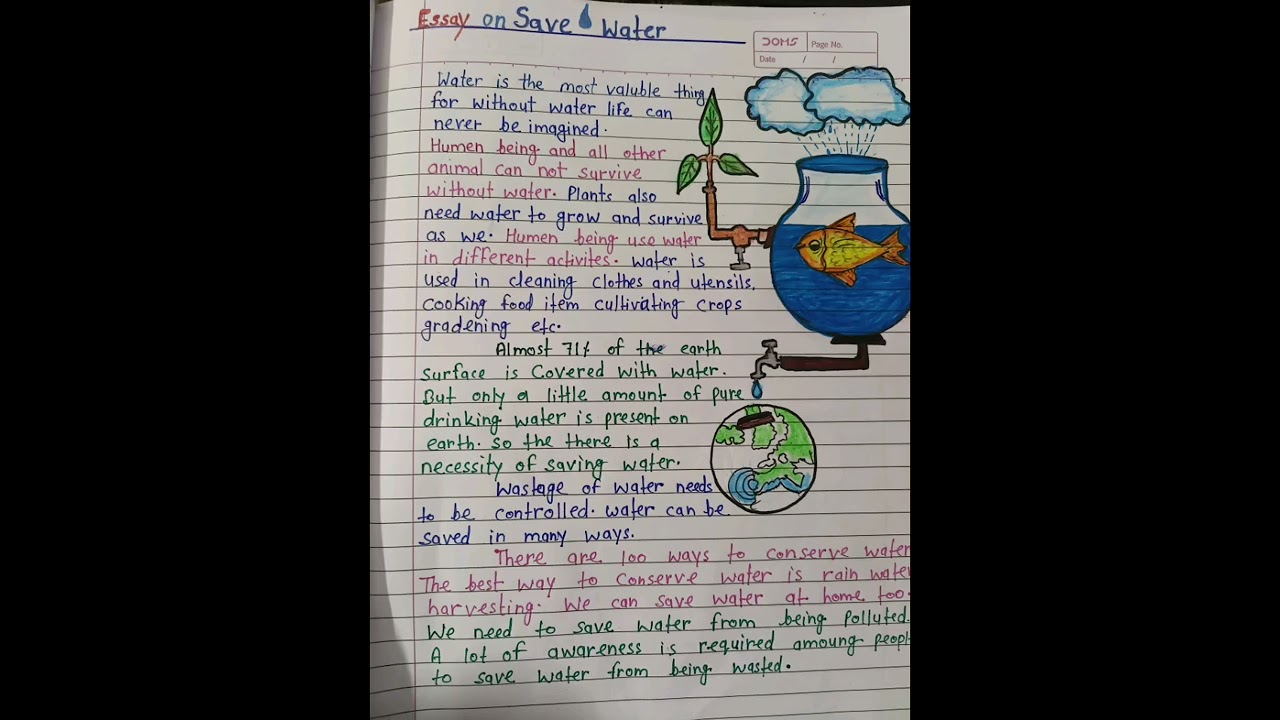 Essay on Save Water
DOMS Page No.
Date / /
Water is the most valuble thing
for without water life can
never be imagined.
Humen being and all other
animal can not survive
without water. Plants also
need water to grow and survive
as we. Humen being use water
in different activites. Water is
used in cleaning clothes and utensils,
cooking food item cultivating crops
gradening etc.
Almost 71% of the earth
surface is covered with water.
But only a little amount of pure
drinking water is present on
earth. so the there is a
necessity of saving water.
Wastage of water needs
to be controlled. water can be
saved in many ways.
There are 100 ways to conserve water
The best way to conserve water is rain water
harvesting. We can save water at home too.
We need to save water from being polluted.
A lot of awareness is required amoung peopl
to save water from being wasted.